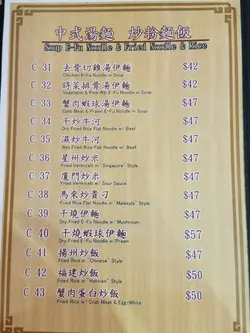 中式湯麵 炒粉麵飯
Soup E-Fu Noodle & Fried Noodle & Rice
C 31 去骨切雞湯伊麵 $42
Chicken E-Fu Noodle in Soup
C 32 時菜排骨湯伊麵 $42
Vegetable & Pork Rib E-Fu Noodle in Soup
C 33 蟹肉蝦球湯伊麵 $47
Crab Meat & Prawn E-Fu Noodle in Soup
C 34 干炒牛河 $47
Dry Fried Rice Flat Noodle w/ Beef
C 35 濕炒牛河 $47
Wet Fried Rice Flat Noodle w/ Beef
C 36 星州炒米 $47
Fried Vermicelli in "Singapore" Style
C 37 廈門炒米 $47
Fried Vermicelli w/ Sour Sauce
C 38 馬來炒貴刁 $47
Fried Rice Flat Noodle in "Malaysia" Style
C 39 干燒伊麵 $47
Dry Fried E-Fu Noodle w/ Mushroom
C 40 干燒蝦球伊麵 $57
Dry Fried E-Fu Noodle w/ Prawn
C 41 揚州炒飯 $47
Fried Rice in "Chinese" Style
C 42 福建炒飯 $50
Fried Rice in "Hokkien" Style
C 43 蟹肉蛋白炒飯 $50
Fried Rice w/ Crab Meat & Egg-White